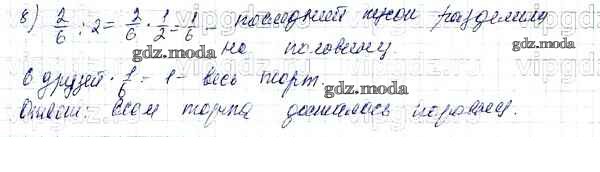 8) 2/6 : 2 = 2/6 · 1/2 = 1/6 – последний кусок разделили
на половину.
6 друзей · 1/6 = 1 – весь торт.
Ответ: всем торта досталось поровну.
gdz.moda
gdz.moda
gdz.moda
gdz.moda